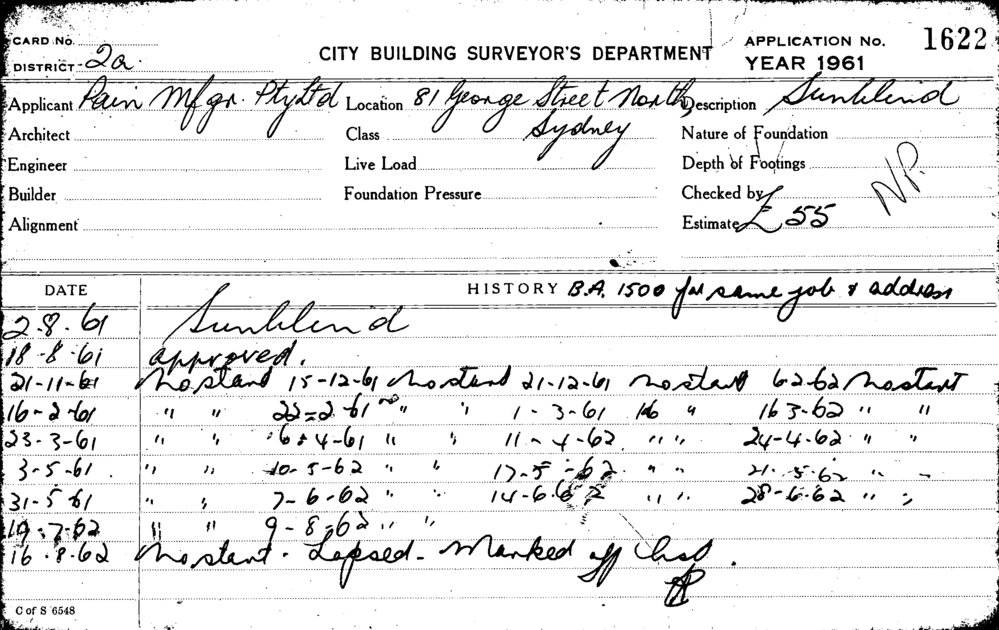 CARD No.
DISTRICT 2a.
CITY BUILDING SURVEYOR'S DEPARTMENT
APPLICATION No. 1622
YEAR 1961
Applicant Pain Mfgr. Pty Ltd Location 81 George Street North, Description Sunblind
Architect Class Sydney Nature of Foundation
Engineer Live Load Depth of Footings
Builder Foundation Pressure Checked by
NP.
Alignment Estimate £55
DATE HISTORY B.A. 1500 for same job & address
2-8-61 Sunblind
18-8-61 approved.
21-11-61 No start 15-12-61 No start 21-12-61 No start 6-2-62 No start
16-2-61 " " 22-2-61 no " " 1-3-61 " 16 3-62 " "
23-3-61 " " 6-4-61 " " 11-4-62 " " 24-4-62 " "
3-5-61 " " 10-5-62 " " 17-5-62 " " 21-5-62 " "
31-5-61 " " 7-6-62 " " 14-6-62 " " 28-6-62 " "
19-7-62 " " 9-8-62 " "
16-8-62 No start - Lapsed - Marked off list.
C of S 6548